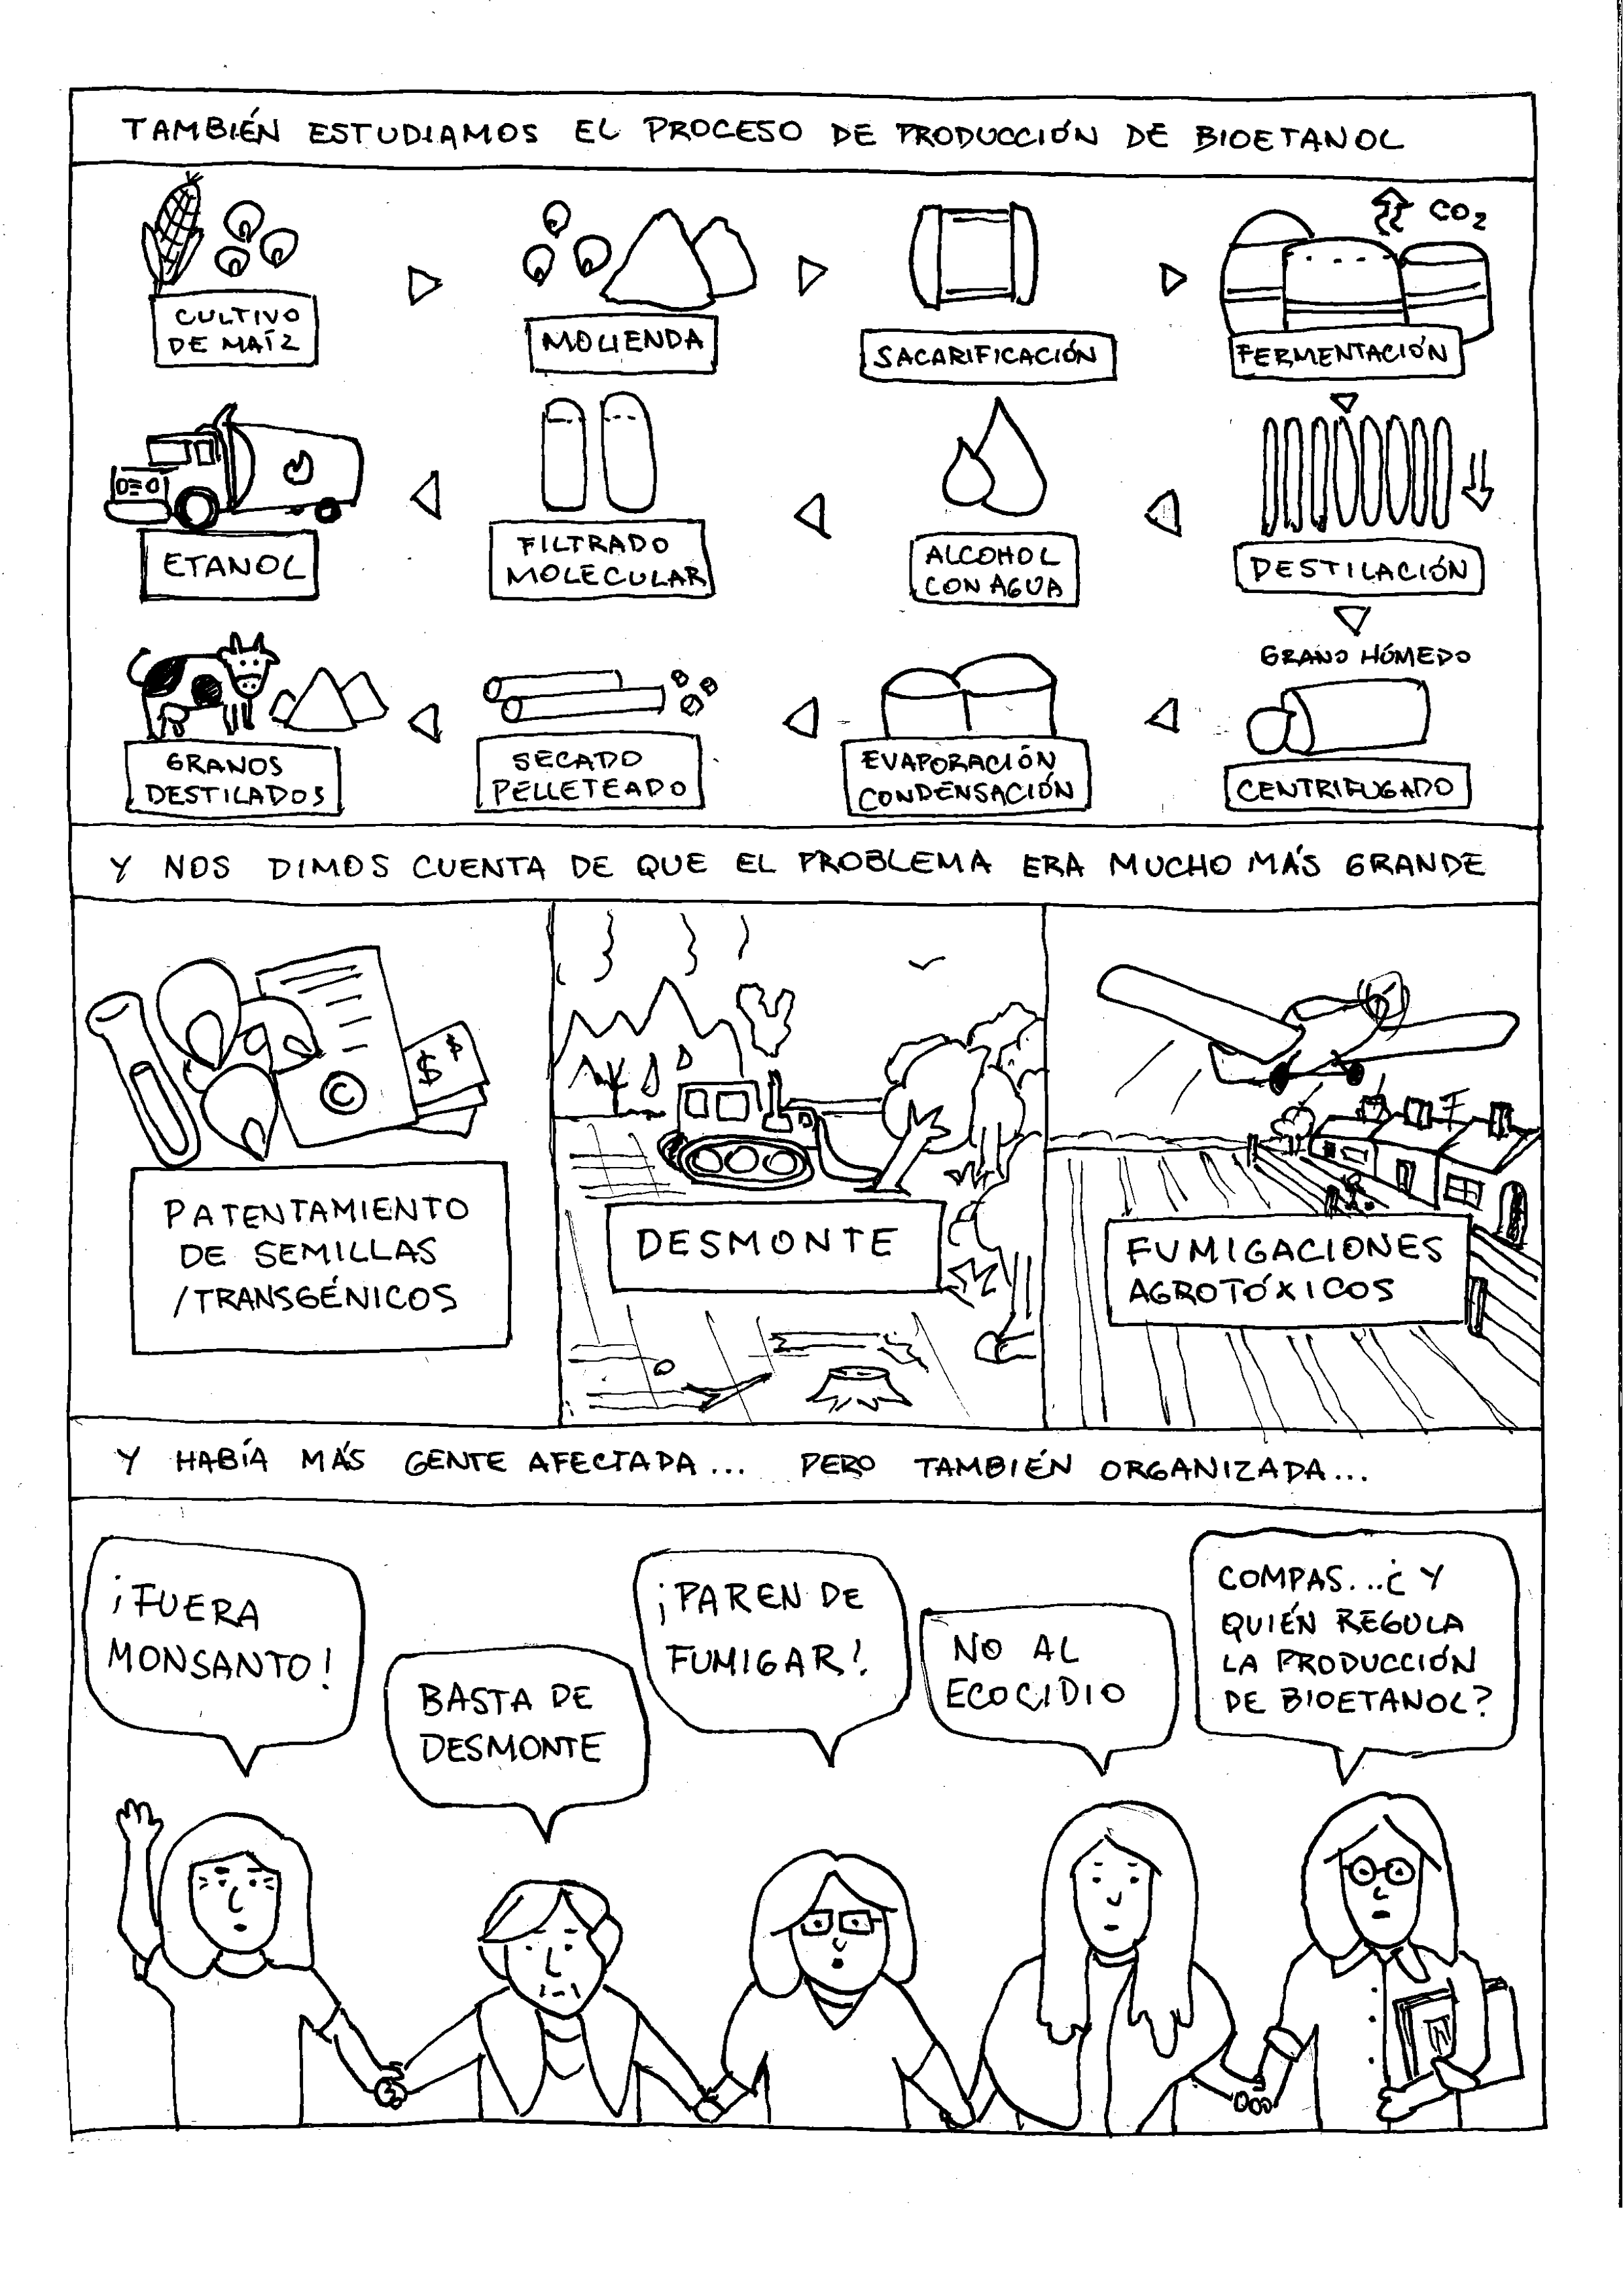 TAMBIÉN ESTUDIAMOS EL PROCESO DE PRODUCCIÓN DE BIOETANOL
CULTIVO
DE MAÍZ
MOLIENDA
SACARIFICACIÓN
CO2
FERMENTACIÓN
DESTILACIÓN
ALCOHOL
CON AGUA
FILTRADO
MOLECULAR
ETANOL
GRANO HÚMEDO
CENTRIFUGADO
EVAPORACIÓN
CONDENSACIÓN
SECADO
PELLETEADO
GRANOS
DESTILADOS
Y NOS DIMOS CUENTA DE QUE EL PROBLEMA ERA MUCHO MÁS GRANDE
©
$ $
PATENTAMIENTO
DE SEMILLAS
/TRANSGÉNICOS
DESMONTE
FUMIGACIONES
AGROTÓXICOS
Y HABÍA MÁS GENTE AFECTADA... PERO TAMBIÉN ORGANIZADA...
¡FUERA
MONSANTO!
BASTA DE
DESMONTE
¡PAREN DE
FUMIGAR!
NO AL
ECOCIDIO
COMPAS...¿Y
QUIÉN REGULA
LA PRODUCCIÓN
DE BIOETANOL?